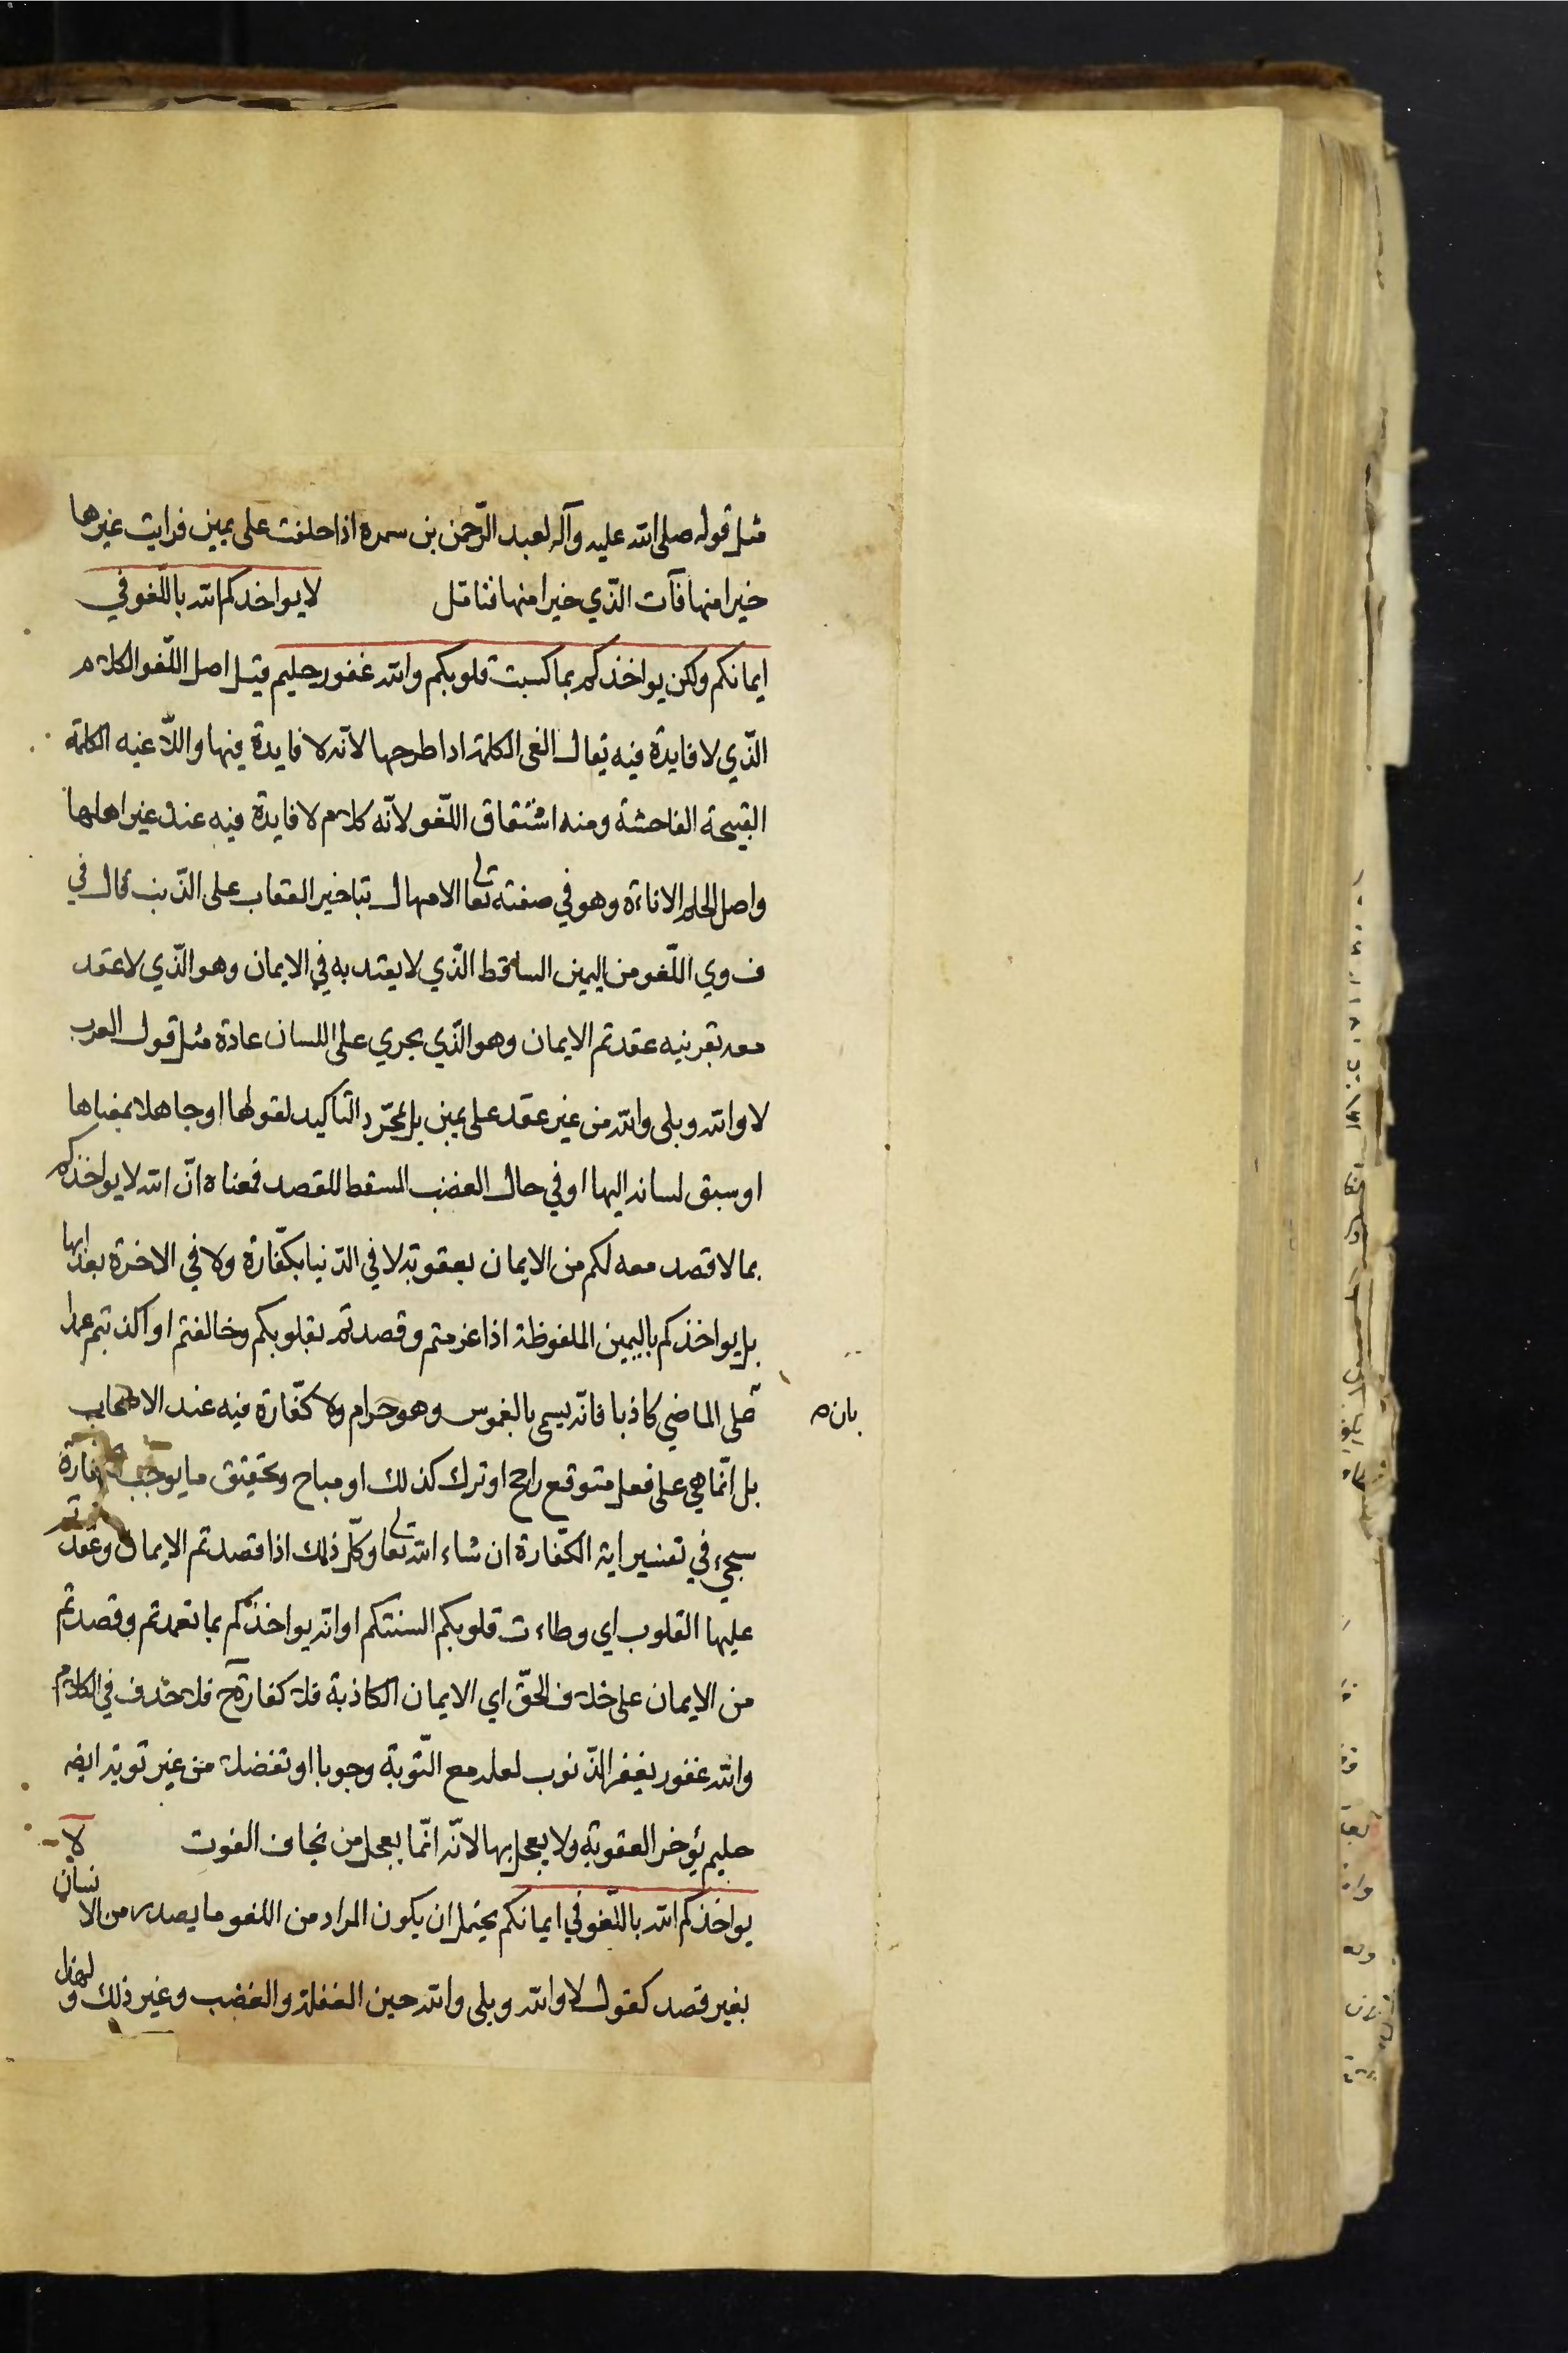 مثل قوله صلى الله عليه وآله لعبد الرّحمن بن سمره اذا حلفت على يمين فرايت غيرها
خيرا منها فآت الّذي خيرا منها فتامّل لا يواخذكم الله باللّغو في
ايمانكم ولكن يواخذكم بما كسبت قلوبكم والله غفور حليم قيل اصل اللّغو الكلام
الّذي لا فايدة فيه يقال الغى الكلمة اذا طرحها لانّه لا فايدة فيها واللّاغيه الكلمة
القبيحة الفاحشة ومنه اشتقاق اللّغو لانّه كلام لا فايدة فيه عند غير اهلها
واصل الحلم الاناءة وهو في صفته تعالى الامهال بتاخير العقاب على الذّنب قال في
ف وي اللّغو من اليمين الساقط الّذي لا يعتد به في الايمان وهو الّذي لا عقد
معه بقرنيه عقدتم الايمان وهو الّذي يجري على اللسان عادة مثل قول العرب
لا والله وبلى والله من غير عقد على يمين بل لمجّرد التاكيد لقولها او جاهلا بمغباها
او سبق لسانه اليها او في حال الغضب المسقط للقصد فمعناه انّ الله لا يواخذكم
بما لا قصد معه لكم من الايمان بعقوبة لا في الدّنيا بكفّارة ولا في الاخرة بعذابها
بل يواخذكم باليمين الملفوظة اذا عزمتم وقصدتم بقلوبكم وخالفتم او اكذبتم عمدا
بان ه
على الماضي كاذبا فانّه يسمى بالغموس وهو حرام ولا كفّارة فيه عند الاصحاب
بل انّما هي على فعل متوقع راجح او ترك كذلك او مباح وتحقيق ما يوجب الكفارة
سيجيء في تفسير اية الكفّارة ان شاء الله تعالى وكلّ ذلك اذا قصدتم الايمان وعقدتم
عليها القلوب اي وطاءت قلوبكم السنتكم او انه يواخذكم بما تعمدتم وقصدتم
من الايمان على خلاف الحقّ اي الايمان الكاذبة فلا كفارة ح فلا حذف في الكلام
والله غفور يغفر الذّنوب لعله مع التّوبة وجوبا او تفضلا من غير توبة ايضه
حليم يؤخر العقوبة ولا يعجل بها لانّه انّما يعجل من يخاف الفوت لا
يواخذكم الله باللّغو في ايمانكم يحتمل ان يكون المراد من اللغو ما يصدر من الانسان
بغير قصد كقول لا والله وبلى والله حين الغفلة والغضب وغير ذلك ولهذا